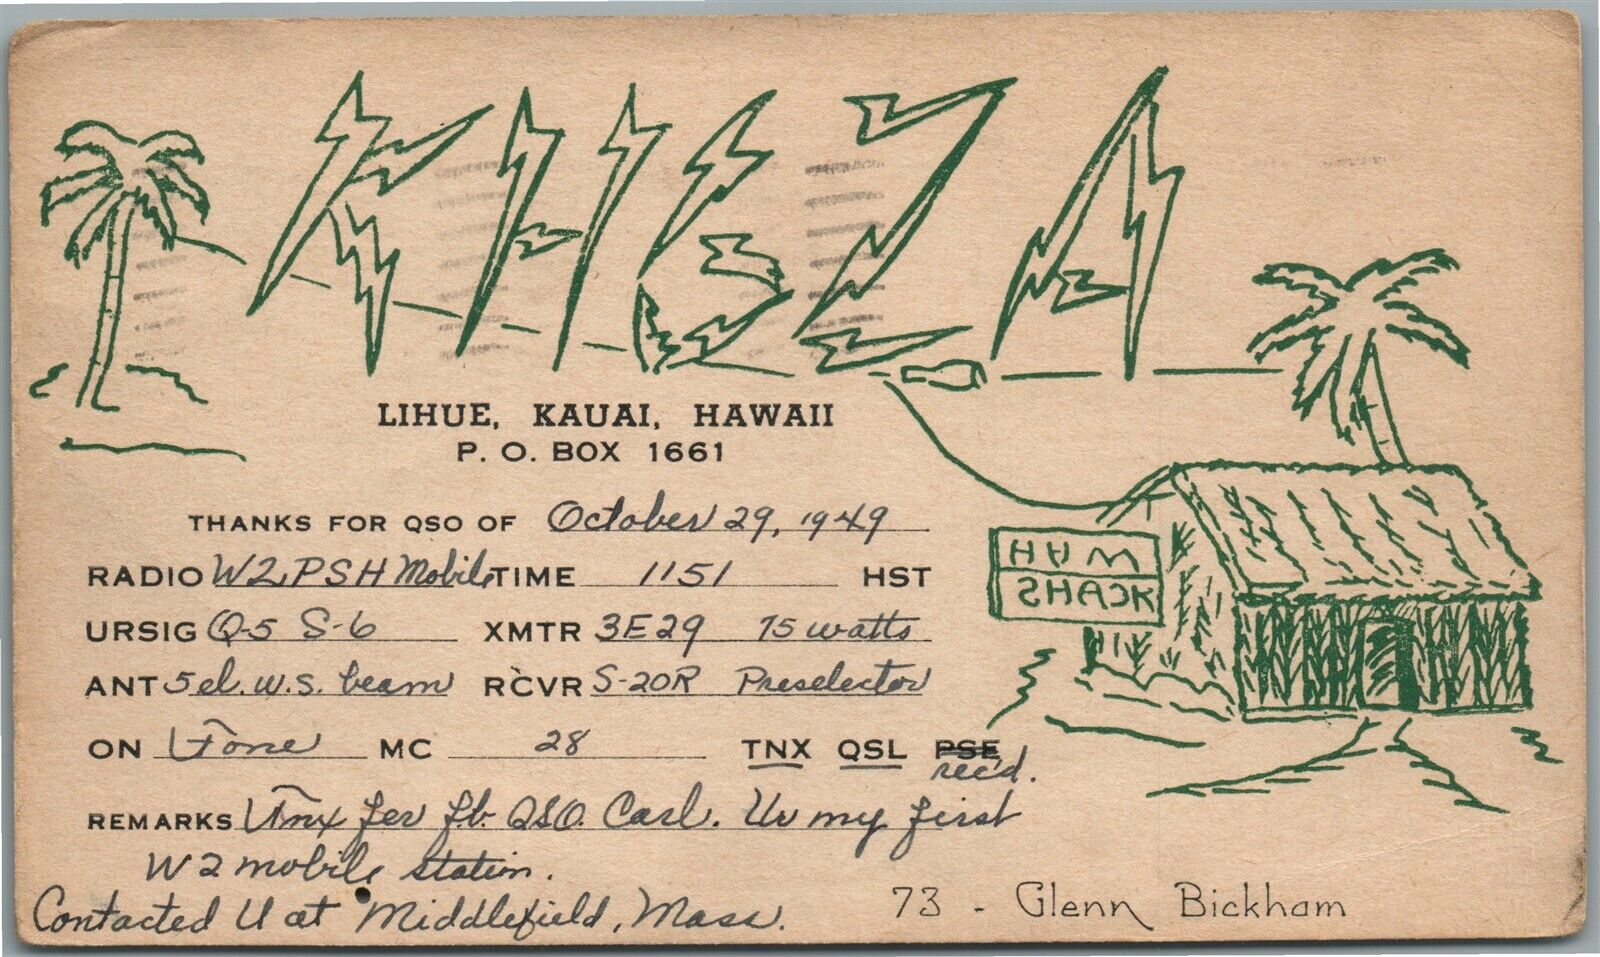 KH6ZA
LIHUE, KAUAI, HAWAII
P. O. BOX 1661
THANKS FOR QSO OF October 29, 1949
RADIO W2PSH Mobile TIME 1151 HST
URSIG Q-5 S-6 XMTR 3E29 75 watts
ANT 5 el. w.s. beam RCVR S-20R Preselector
ON Fone MC 28 TNX QSL PSE rec'd.
REMARKS Tnx fer f.b. QSO. Carl. Ur my first
W2 mobile station.
Contacted U at Middlefield, Mass.
73 - Glenn Bickham
HAM
SHACK